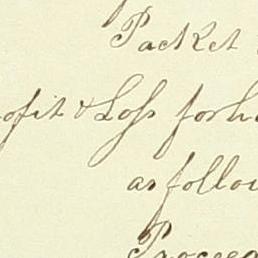 Packet
ofit & Loss forh
as follow
Proceed